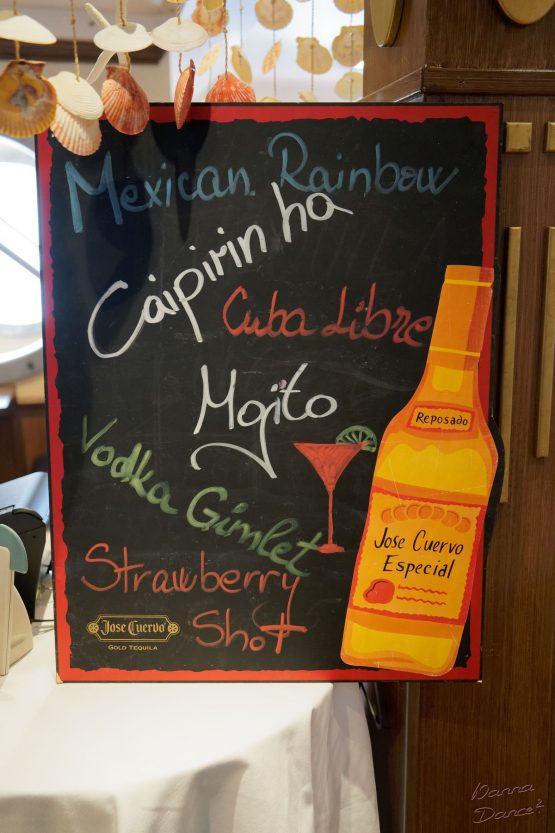 Mexican Rainbow
Caipirinha
Cuba Libre
Mojito
Vodka Gimlet
Strawberry
Shot
Reposado
Jose Cuervo
Especial
Jose Cuervo
GOLD TEQUILA
Wanna
Dance?